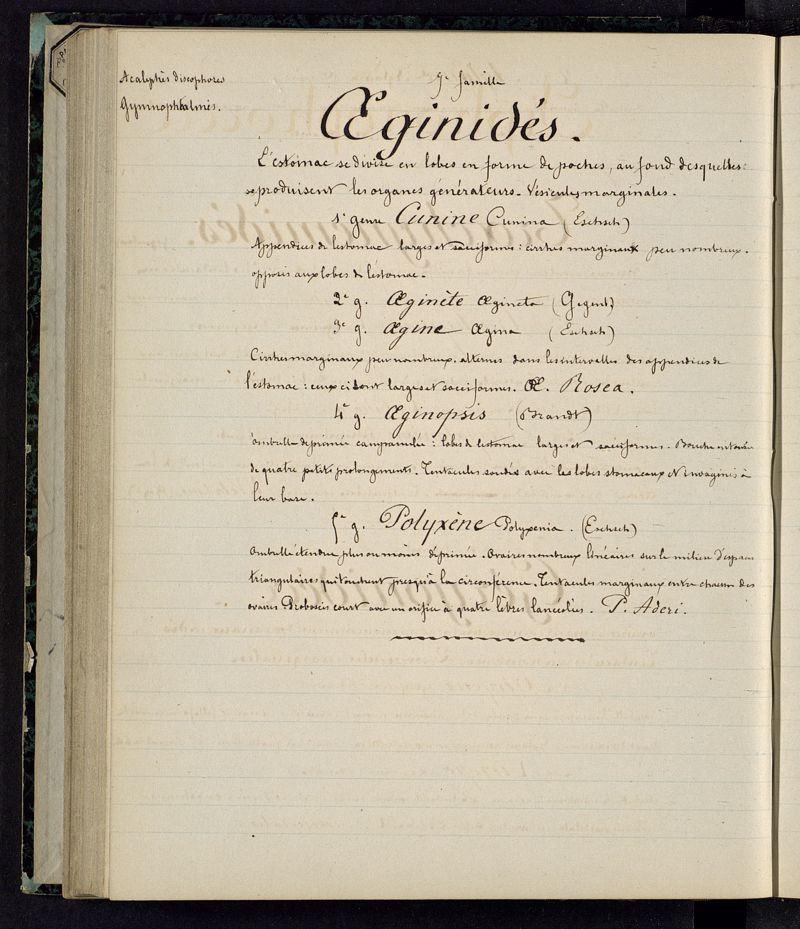 Acalèphes discophores
Gymnophtalmés.
7e famille
Æginidés.
L'estomac se divise en lobes en forme de poches, au fond desquelles
se produisent les organes générateurs. Vésicules marginales.
1e genre Cunine Cunina (Eschsch)
Appendices de l'estomac larges et sacciformes : cirrhes marginaux peu nombreux.
opposés aux lobes de l'estomac.
2e g. Æginète Ægineta (Gegent)
3e g. Ægine Ægina (Eschsch)
Cirrhes marginaux peu nombreux. alternes dans les intervalles des appendices de
l'estomac : ceux ci sont larges et sacciformes. Æ. Rosea.
4e g. Æginopsis (Brandt)
Ombrelle déprimée campanulée : lobes de l'estomac larges et sacciformes. Bouche entourée
de quatre petits prolongements. Tentacules soudés avec les lobes stomacaux et invaginés à
leur base.
5e g. Polyxène Polyxenia. (Eschsch)
Ombrelle étendue plus ou moins déprimée. Ovaires nombreux linéaires sur le milieu d'espaces
triangulaires qui tendent jusqu'à la circonférence. Tentacules marginaux entre chacun des
ovaires Proboscis court avec un orifice à quatre lèvres lancéolées. P. Aderi.